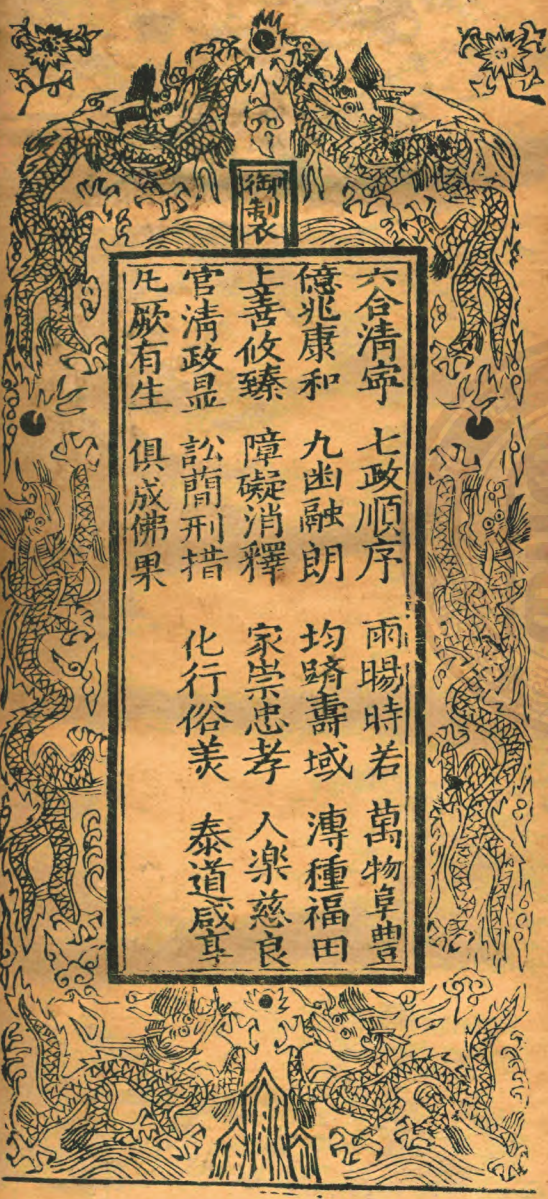 御製
六合清寧 七政順序 雨暘時若 萬物阜豊
億兆康和 九幽融朗 均躋壽域 溥種福田
上善攸臻 障礙消釋 家崇忠孝 人楽慈良
官清政显 訟簡刑措 化行俗美 泰道咸亨
凡厥有生 俱成佛果